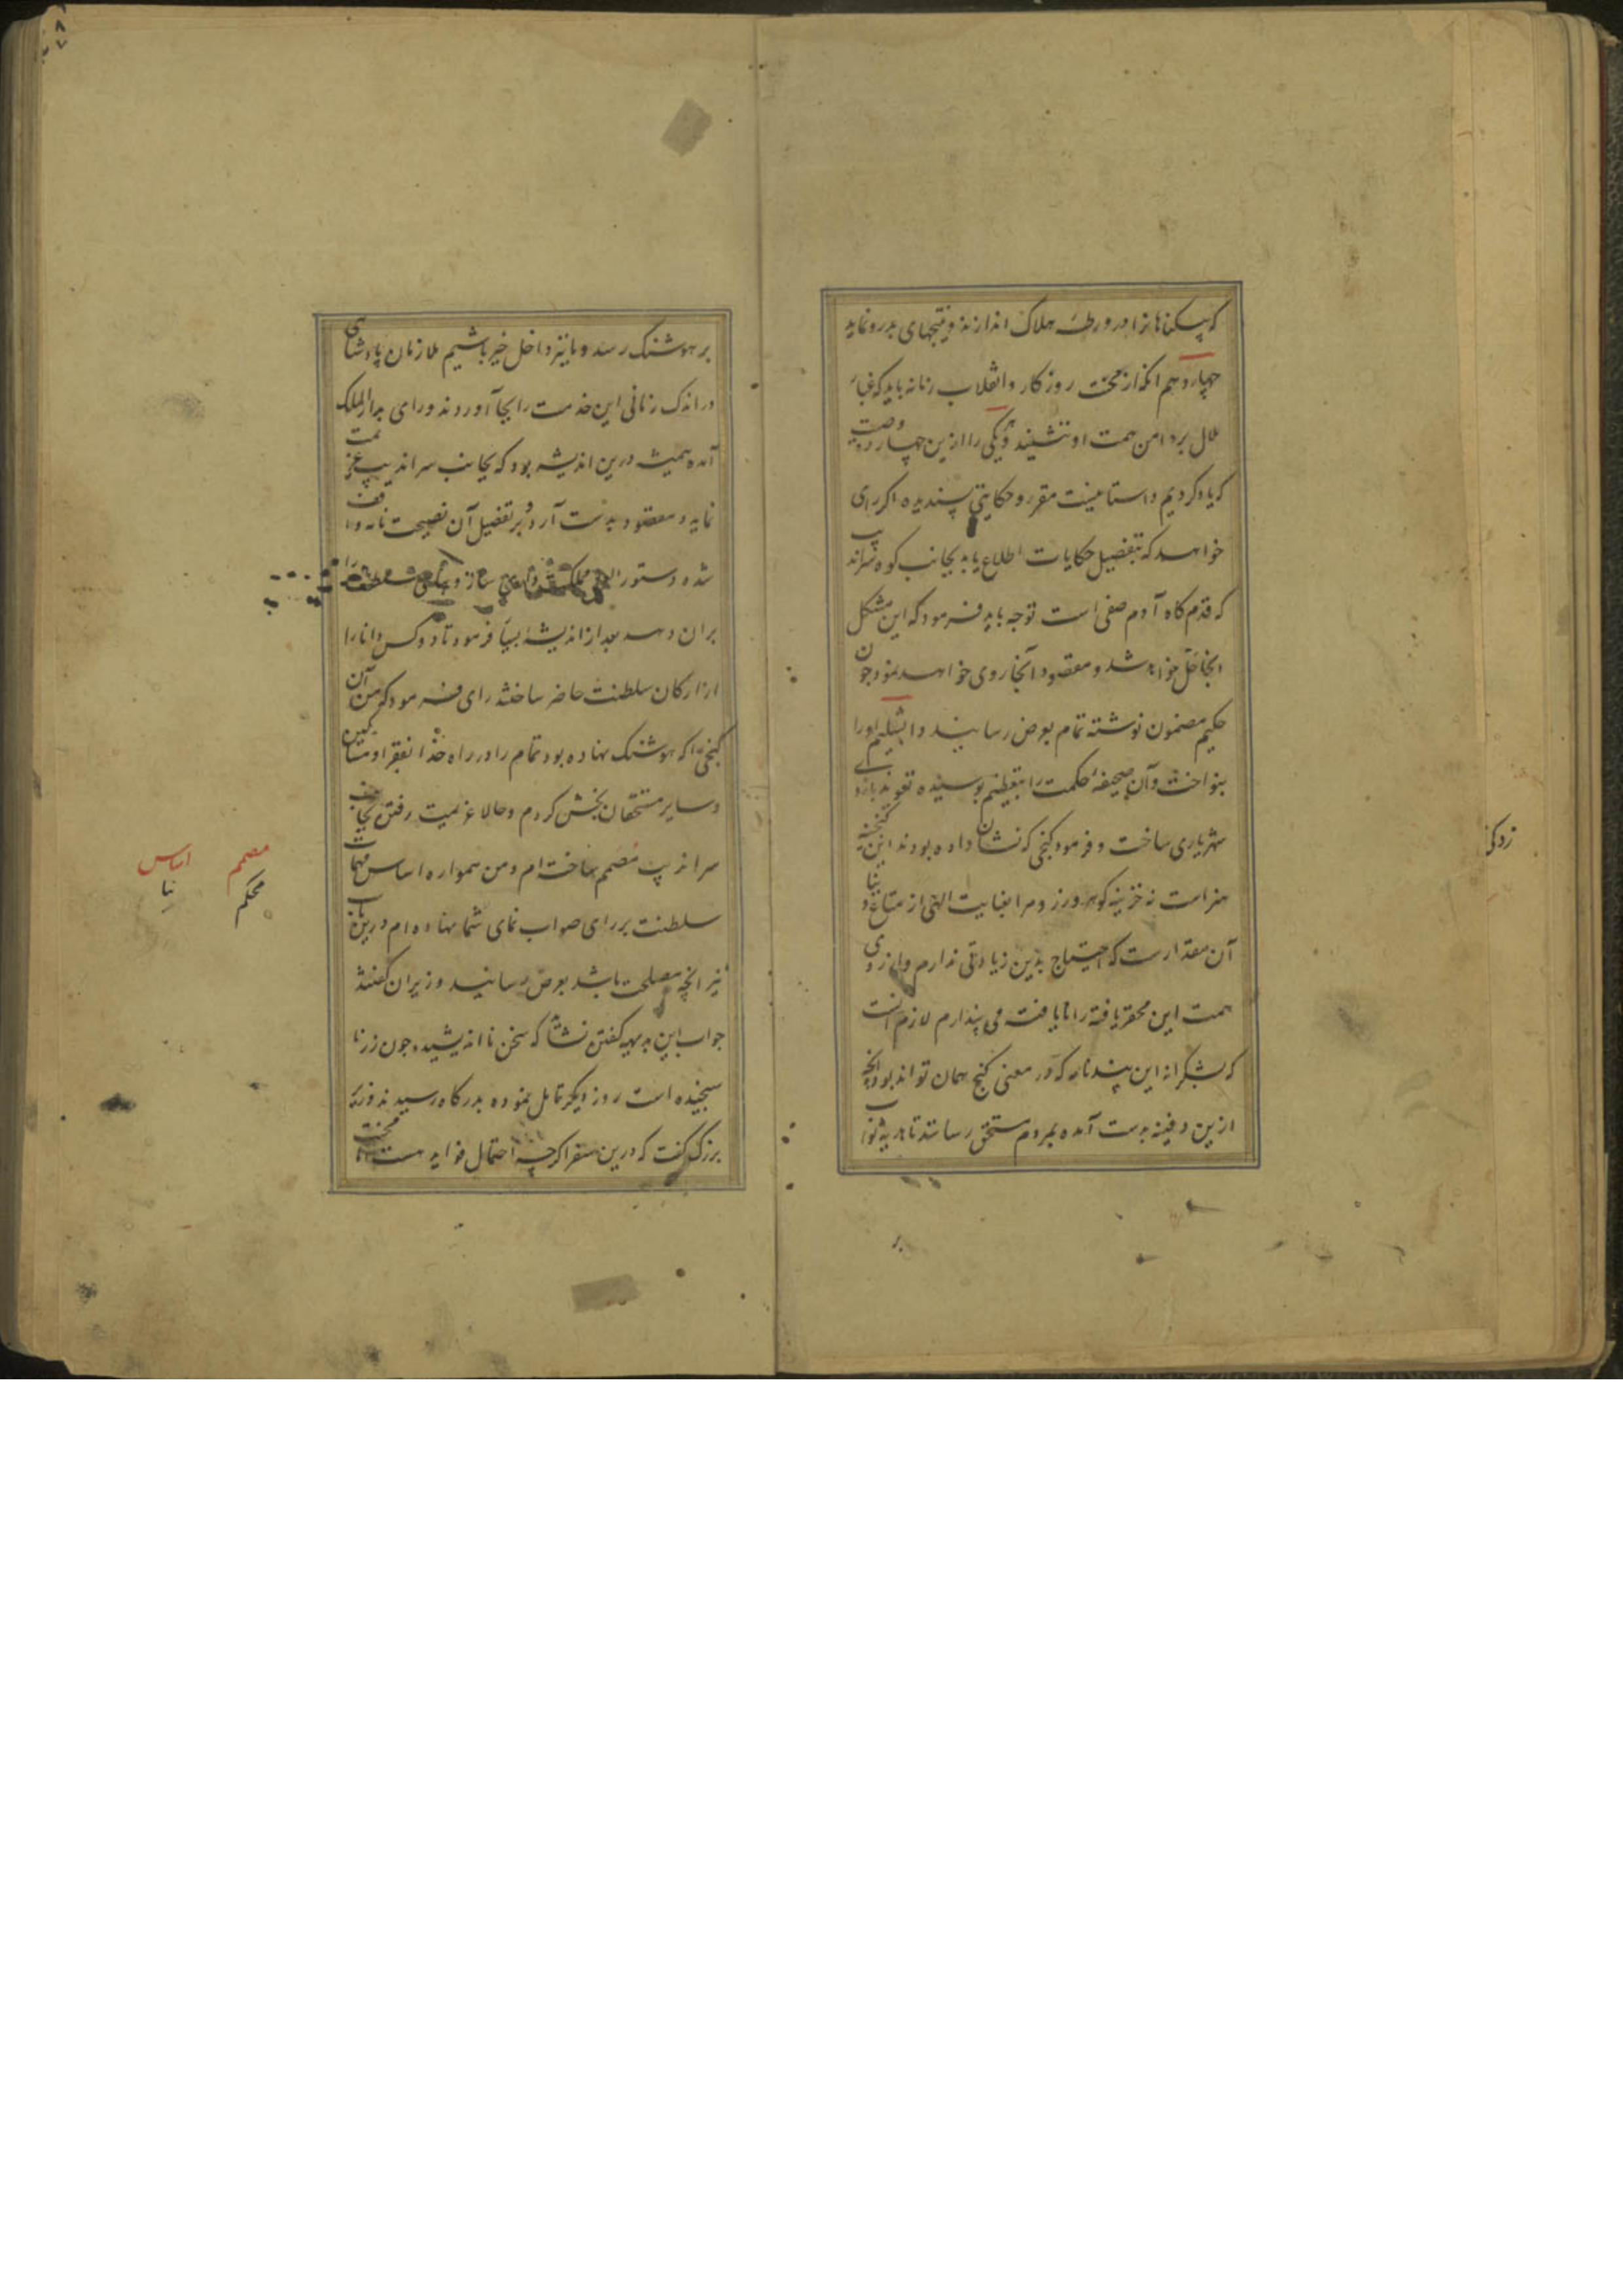 که بیکناهانرا در ورطهٔ هلاک اندازند و نتیجهای بد رو نماید
چهاردهم انکه از محنت روزکار و انقلاب زمانه باید که غبار
ملال بر دامن همت او ننشیند و هر یکی را ازین چهارده وصیت
که یاد کردیم داستانیست مقرر و حکایتی پسندیده اکر رای
خواهد که بتفصیل حکایات اطلاع یابد بجانب کوه سراندیب
که قدم کاه آدم صفی است توجه باید فرمود که این مشکل
انجا حل خواهد شد و مقصود آنجا روی خواهد نمود جون
حکیم مضمون نوشته تمام بعرض رسانید دابشلیم اورا
بنواخت و آن صحیفهٔ حکمت را بتعظیم بوسیده تعویذ بازوی
شهریاری ساخت و فرمود کنجی که نشان داده بودند این کنجینه
هنر است نه خزینه کوهر و زر و مرا بعنایت الهی از متاع دنیا
آن مقدار ست که احتیاج بدین زیادتی ندارم و از روی
همت این محقر یافته را نایافته می پندارم لازم انست
که بشکرانه این پندنامه که در معنی کنج همان تواند بود انچه
ازین دفینه بدست آمده بمردم مستحق رسانند تا هدیه ثواب
بر
زدکر
بر هوشنک رسد و ما نیز داخل خیر باشیم ملازمان پادشاهی
در اندک زمانی این خدمت را بجا آوردند و رای بدار الملک
آمده همیشه درین اندیشه بود که بجانب سراندیب عزیمت
نماید و مقصود بدست آرد و بر تفصیل آن نصیحت نامه واقف
شده دستور العمل مملکت سازد
بران دهد بعد از اندیشهٔ بسیار فرمود تا دو کس دانا را
از ارکان سلطنت حاضر ساختند رای فرمود که من آن
کنجی را که هوشنک نهاده بود تمام را در راه خدا بفقرا و مساکین
و سایر مستحقان بخش کردم و حالا عزیمت رفتن بجانب
سراندیب مصمم ساخته ام و من همواره اساس مهمات
سلطنت بر رای صواب نمای شما نهاده ام درین باب
نیز انچه مصلحت باشد بعرض رسانید وزیران کفتند
جواب این بدیهه کفتن نشاید که سخن نا اندیشیده جون زر نا
سنجیده است روز دیکر تامل نموده بدرکاه رسیدند وزیر
بزرک کفت که درین سفر اکرچه احتمال فواید هست اما محنت
مصمم
محکم
اساس
بنا